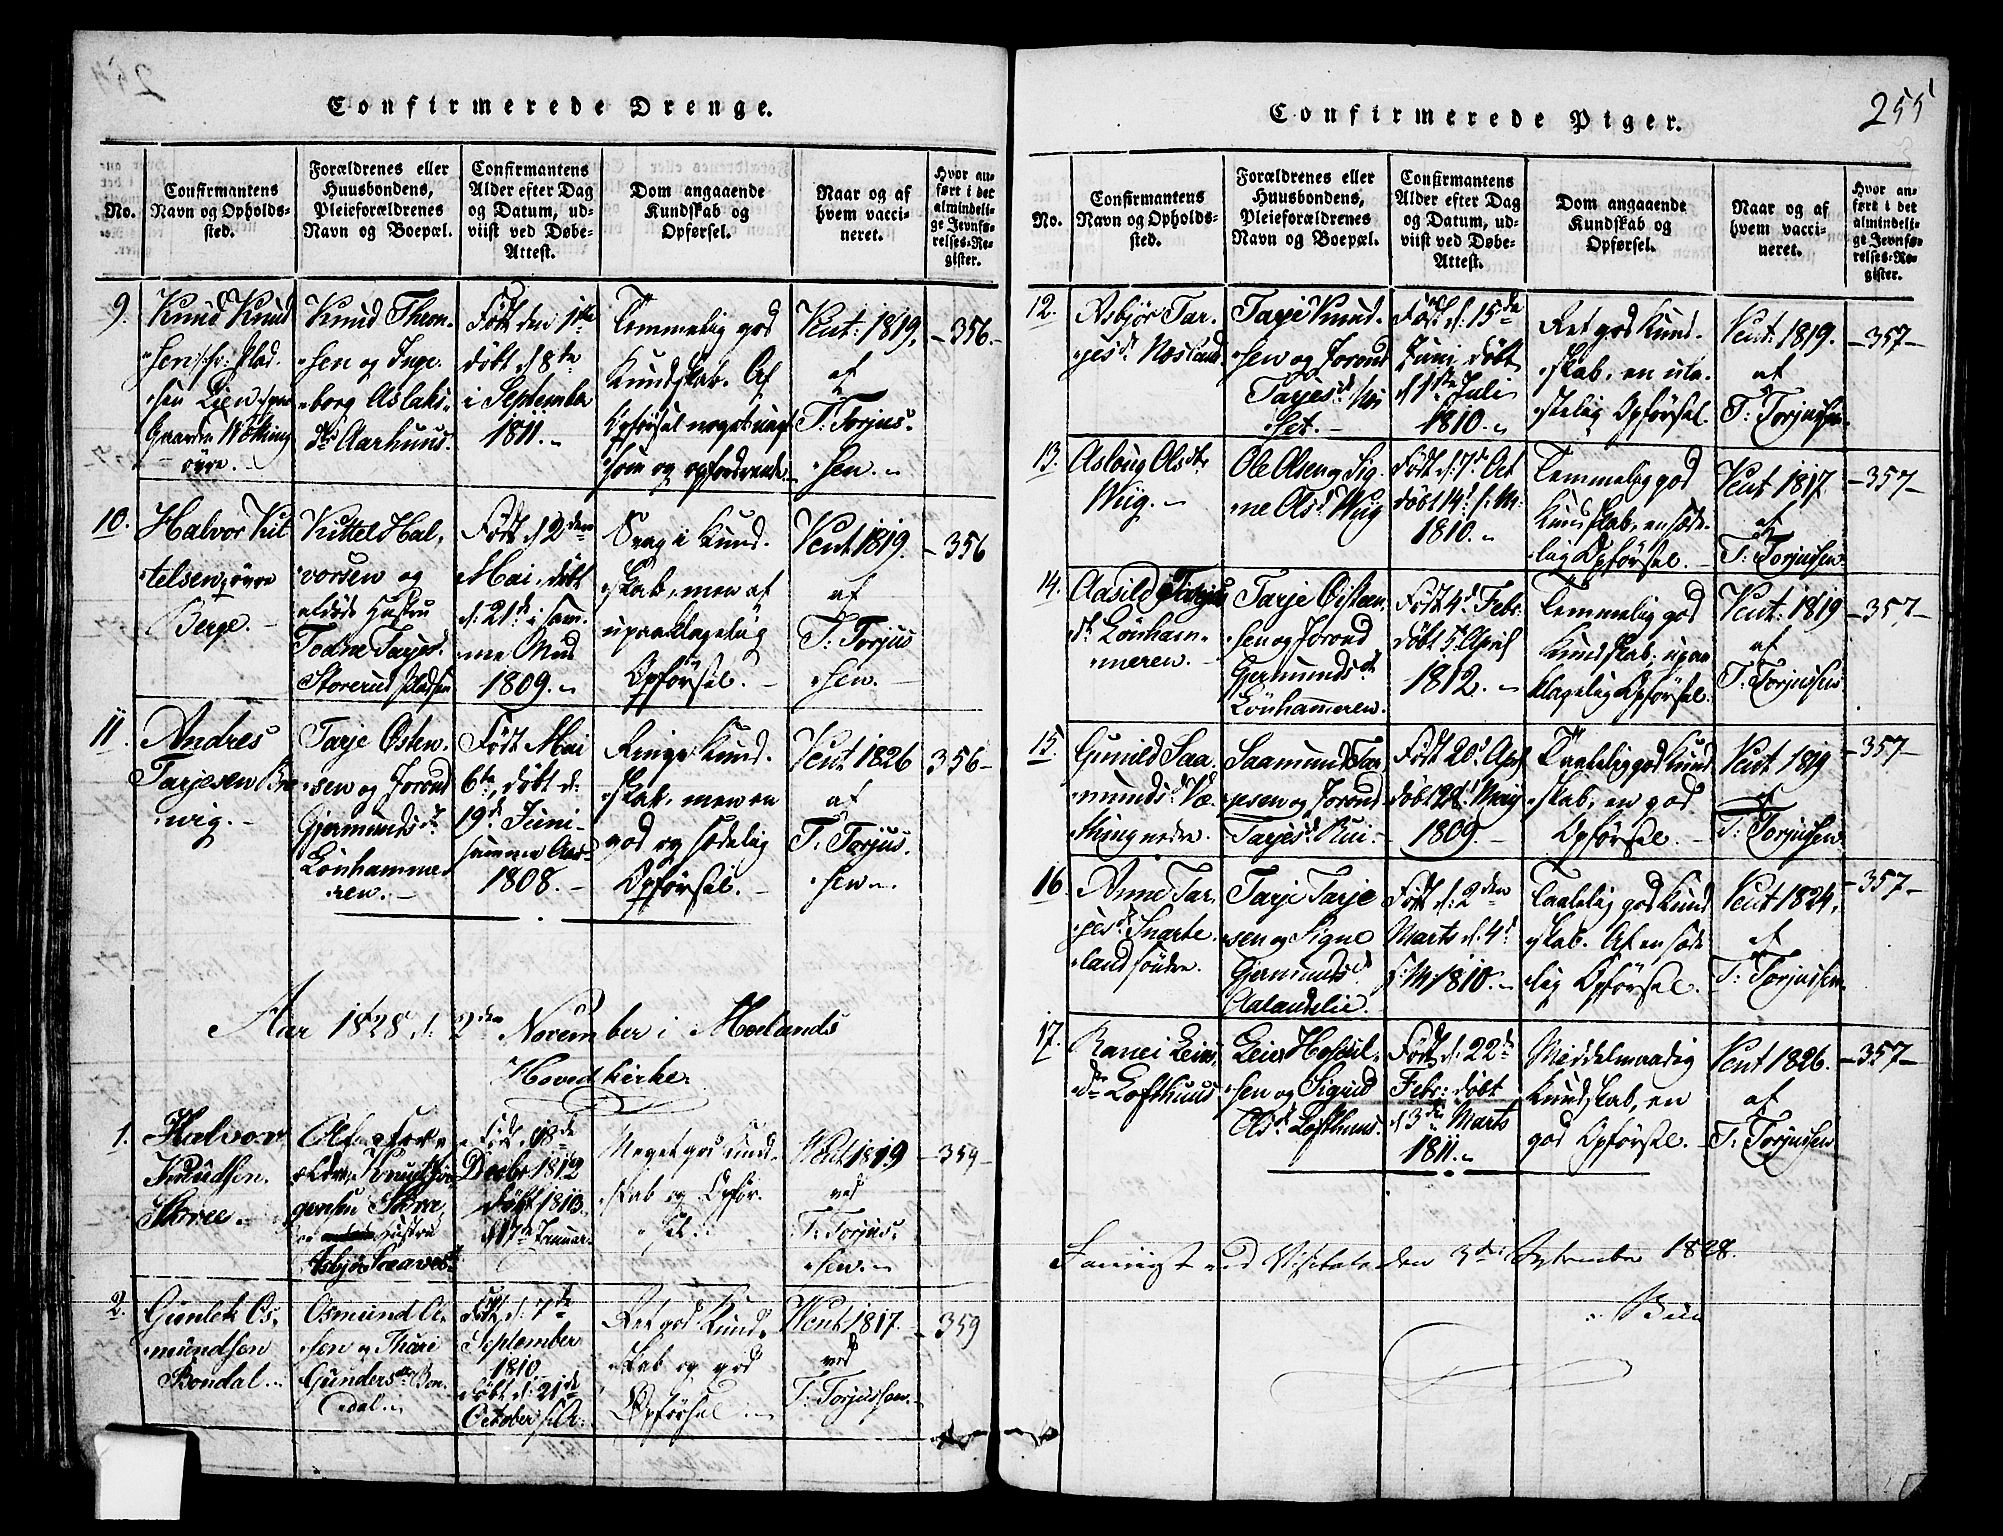 Confirmerede Drenge.
No.
Confirmantens
Navn og Opholds-
sted.
Forældrenes eller
Huusbondens,
Pleieforældrenes
Navn og Boepæl.
Confirmantens
Alder efter Dag
og Datum, ud-
viist ved Døbe-
Attest.
Dom angaaende
Kundskab og
Opførsel.
Naar og af
hvem vacci-
neret.
Hvor an-
ført i det
almindeli-
ge Jevnfø-
relses-Re-
gister.
9.
Knud Knud
sen
Lien
øvre.
Knud Theon-
sen og Inge-
borg Aslaks-
dr Aarhuus.
Født den 1ste
døbt d 8te
i September
1811.
Temmelig god
Kundskab. Af
Opførsel noget uagt
som og opfordrende.
Vent: 1819.
af
T: Torjus-
sen.
356
10.
Halvor Kit
telsen, øvre
Berge.
Kittel Hal-
vorsen og
Hustru
Tarjes-
Storerud pladsen
Født d 2den
Mai, døbt
d: 21de i sam-
me Mnd
1809.
Svag i Kund-
skab, men af
upaaklagelig
Opførsel.
Vent 1819.
af
T: Torjus
sen.
356
11.
Andres
Tarjesen
Tarje Østen-
sen og Jorond
Gjermundsdr
Lønhamme-
ren.
Født Mai
6te, døbt d:
19de Juni
samme Aar
1808.
Ringe Kund-
skab, men en
god og sædelig
Opførsel.
Vent 1826
af
T. Torjus-
sen.
356
Aar 1828 d. 2den November i Moelands
Hovedkirke.
1.
Halvor
Knudsen
Skree.
Knud
gensen Skree
Hustru
Født d 18de
Decbr 1812
døbt 1813
d 17de Januar.
Meget god Kund-
skab og Opfør-
sel.
Vent 1819
ved
T: Torjus-
sen.
359
2.
Gunlek Os-
mundsen
Bondal.
Osmund O-
sen og Thari
Gundersdr Bon-
dal.
Født d: 7de
September
1810
døbt d: 21de
October s: A:
Ret god Kund-
skab og god
Opførsel.
Vent 1817.
ved
T. Torjussen.
359
Confirmerede Piger.
255
No.
Confirmantens
Navn og Opholds-
sted.
Forældrenes eller
Huusbondens,
Pleieforældrenes
Navn og Boepæl.
Confirmantens
Alder efter Dag
og Datum, ud-
viist ved Døbe-
Attest.
Dom angaaende
Kundskab og
Opførsel.
Naar og af
hvem vacci-
neret.
Hvor an-
ført i det
almindeli-
ge Jevnfø-
relses-Re-
gister.
12.
Asbjør Tar-
jesdr Næsland
Tarje Knud-
sen og Jorond
Tarjesdr
Født d: 15de
Juni, døbt
d 1ste Juli
1810.
Ret god Kund-
skab, en ula-
stelig Opførsel.
Vent: 1819.
af
T: Torjussen.
357
13.
Asloug Olsdr
Wiig.
Ole Olsen og Sig-
ne Olsdr Wiig
Født d: 7de Oct
døbt 14de s: M:
1810.
Temmelig god
Kundskab, en sæde-
lig Opførsel.
Vent 1817.
af
T: Torjussen
357
14.
Aasild Tarjes
dr Lønham-
meren.
Tarje Østen-
sen og Jorond
Gjermundsdr
Lønhammeren.
Født 4de Febr:
døbt 5te April
1812.
Temmelig god
Kundskab, upaa-
klagelig Opførsel.
Vent: 1819
af
T. Torjussen
357
15.
Gunild Saa-
mundsdr
nedre.
Saamund Tar-
jesen og Jorond
Tarjesdr
Født 20de Apr
døbt 28de May
1809.
Taalelig god Kund
skab, en god
Opførsel.
Vent 1819
af
T: Torjussen
357
16.
Anne Tar-
jesdr Snarte-
land søndre.
Tarje Tarje
sen og Signe
Gjermundsdr
Aalandslie.
Født d: 2den
Marts d: 4de
s: M: 1810.
Taalelig god Kund
skab. Af en sæde-
lig Opførsel.
Vent 1824.
af
T: Torjussen.
357
17.
Ranei Leivs
dr Lofthuus
Leiv
sen og Sigrid
Olsdr Lofthuus.
Født d: 22de
Febr: døbt
d 3die Marts
1811.
Middelmaadig
Kundskab, en
god Opførsel.
Vent 1826.
af
T. Torjussen
357
ved Visitats den 3die September 1828.